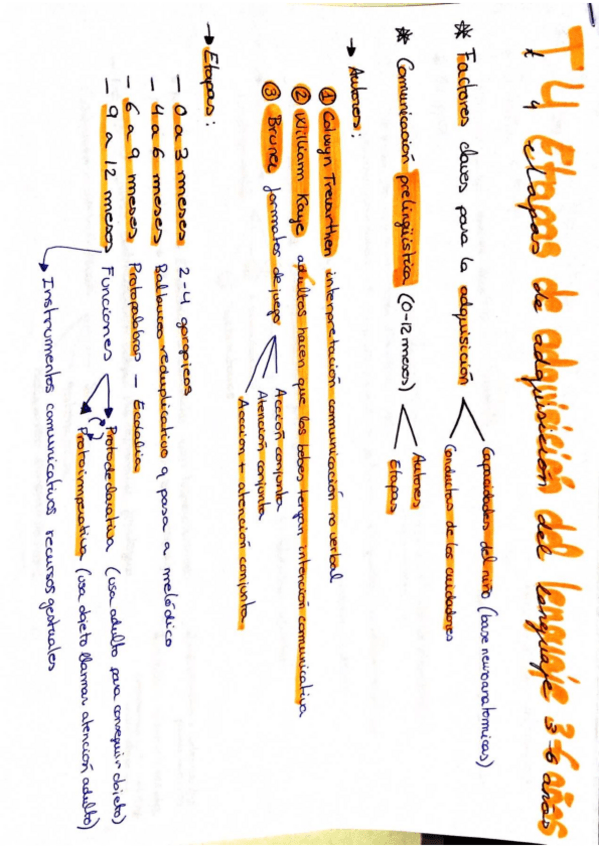 T4 Etapas de adquisición del lenguaje 3-6 años
* Factores claves para la adquisición
Capacidades del niño (base neuroanatomicas)
Conductas de los cuidadores
* Comunicación prelingüística (0-12 meses)
Autores
Etapas
→ Autores:
① Colwyn Trevarthen interpretación comunicación no verbal
② William Kaye adultos hacen que los bebes tengan intención comunicativa
③ Bruner formatos de juego
Acción conjunta
Atención conjunta
Acción + atención conjunta
→ Etapas:
- 0 a 3 meses 2-4 gorgojeos
- 4 a 6 meses Balbuceo reduplicativo q pasa a melódico
- 6 a 9 meses Protopalabras - Ecolalia
- 9 a 12 meses Funciones
Protodeclarativa (usa adulto para conseguir objeto)
Protoimperativa (usa objeto llamar atención adulto)
Instrumentos comunicativos recursos gestuales